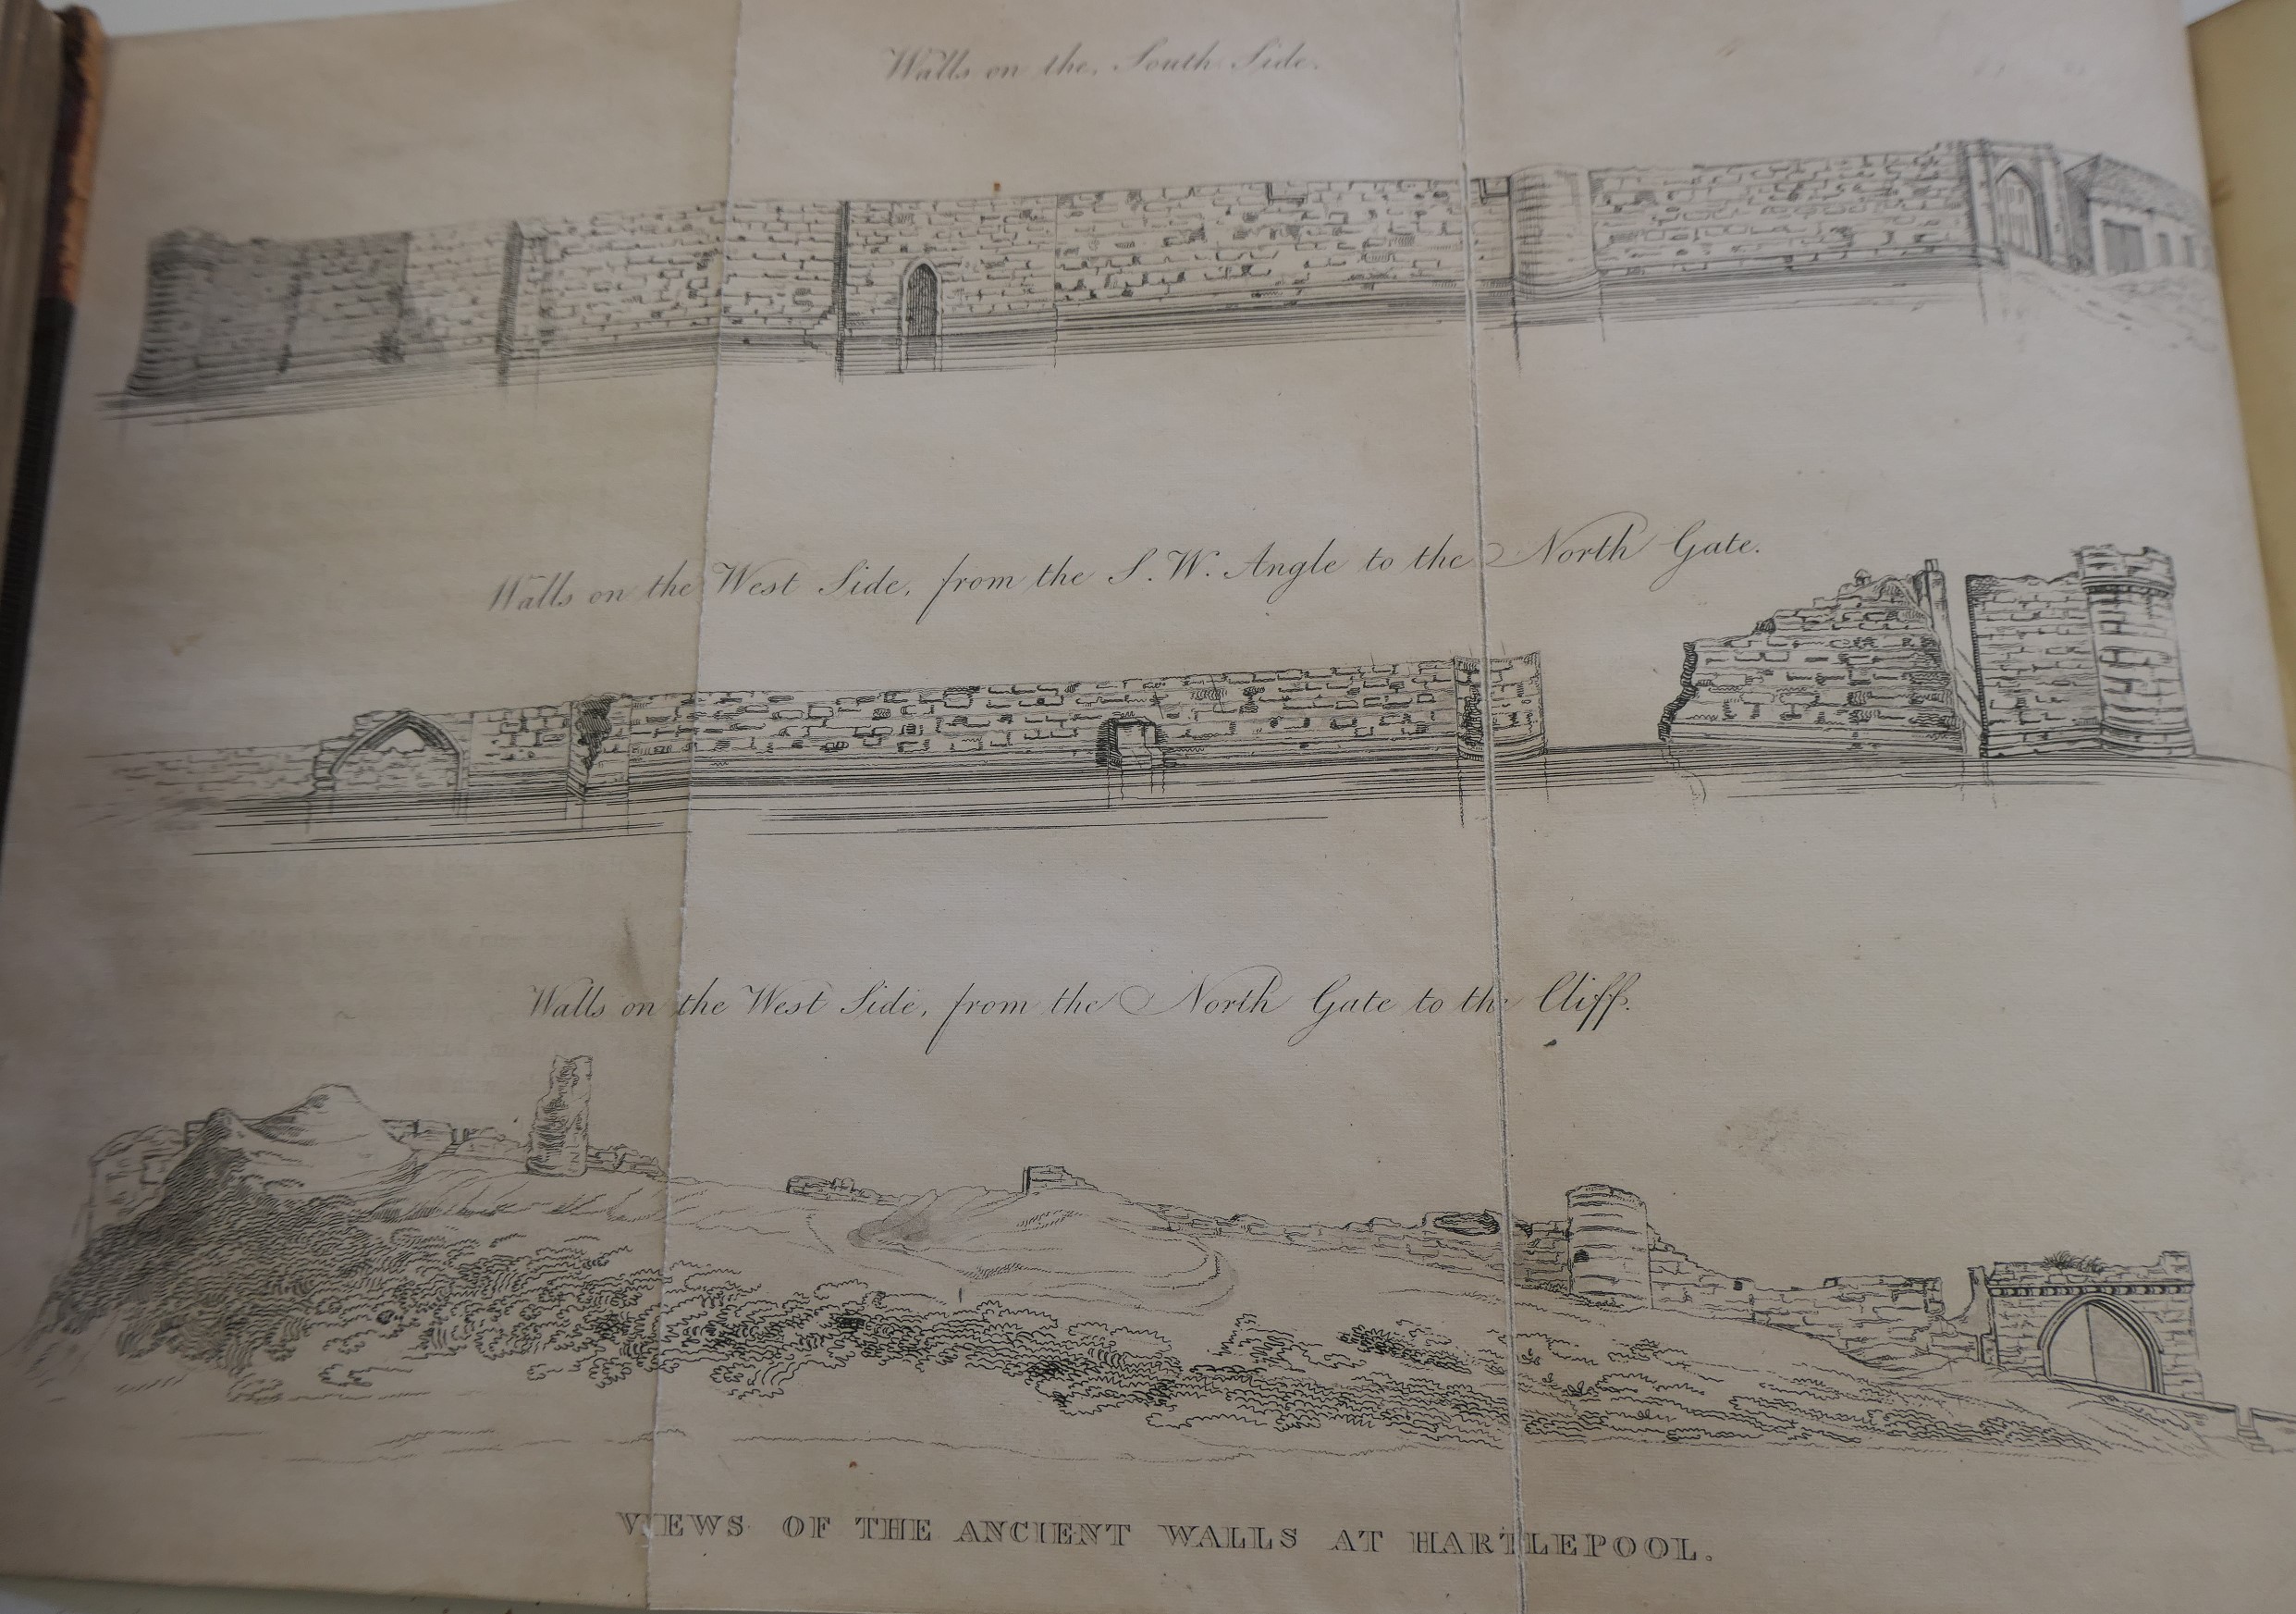 Walls on the South Side.
Walls on the West Side, from the S. W. Angle to the North Gate.
Walls on the West Side, from the North Gate to the Cliff.
VIEWS OF THE ANCIENT WALLS AT HARTLEPOOL.